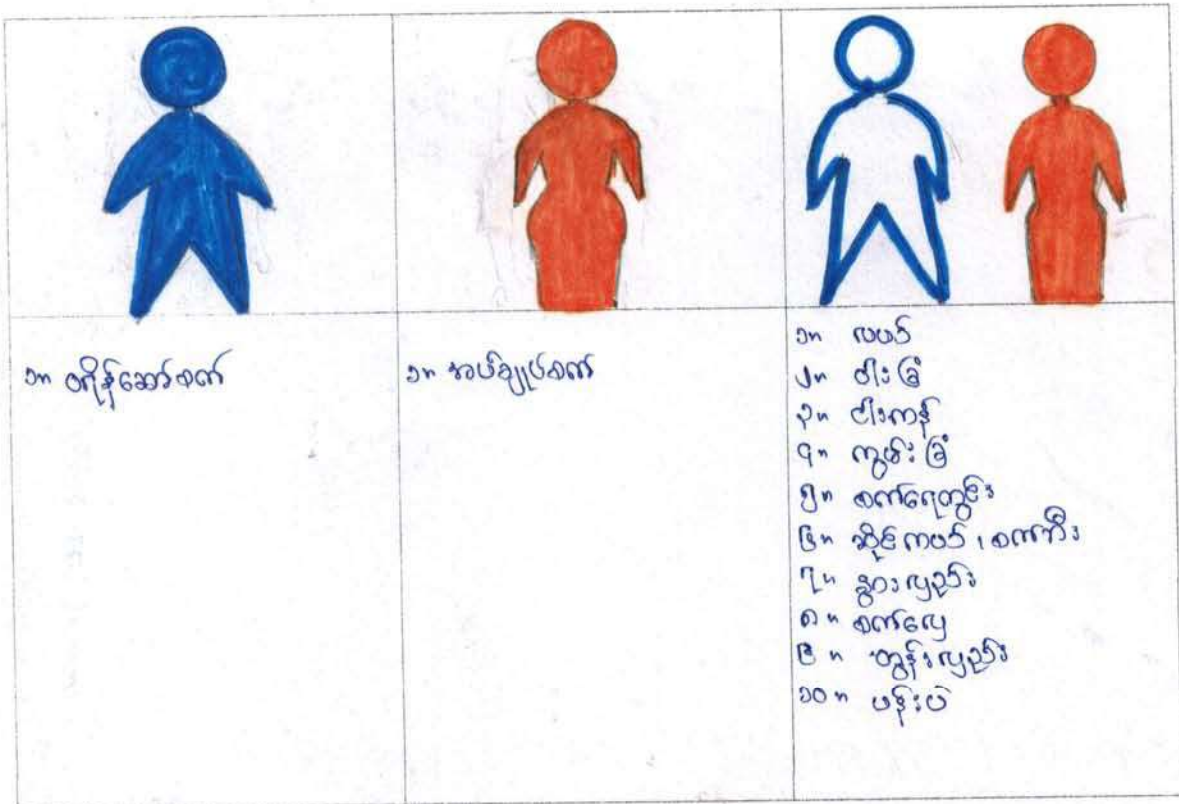 ၁။ ပရိန်ဆော်စက်
၁။ အပ်ချုပ်စက်
၁။ လယ်
၂။ ဝါးခြံ
၃။ ငါးကန်
၄။ ကွမ်းခြံ
၅။ စက်ရေတွင်း
၆။ ဆိုင်ကယ်၊ စက်ဘီး
၇။ နွားလှည်း
၈။ စက်လှေ
၉။ ထွန်လှည်း
၁၀။ ပန်းပဲ